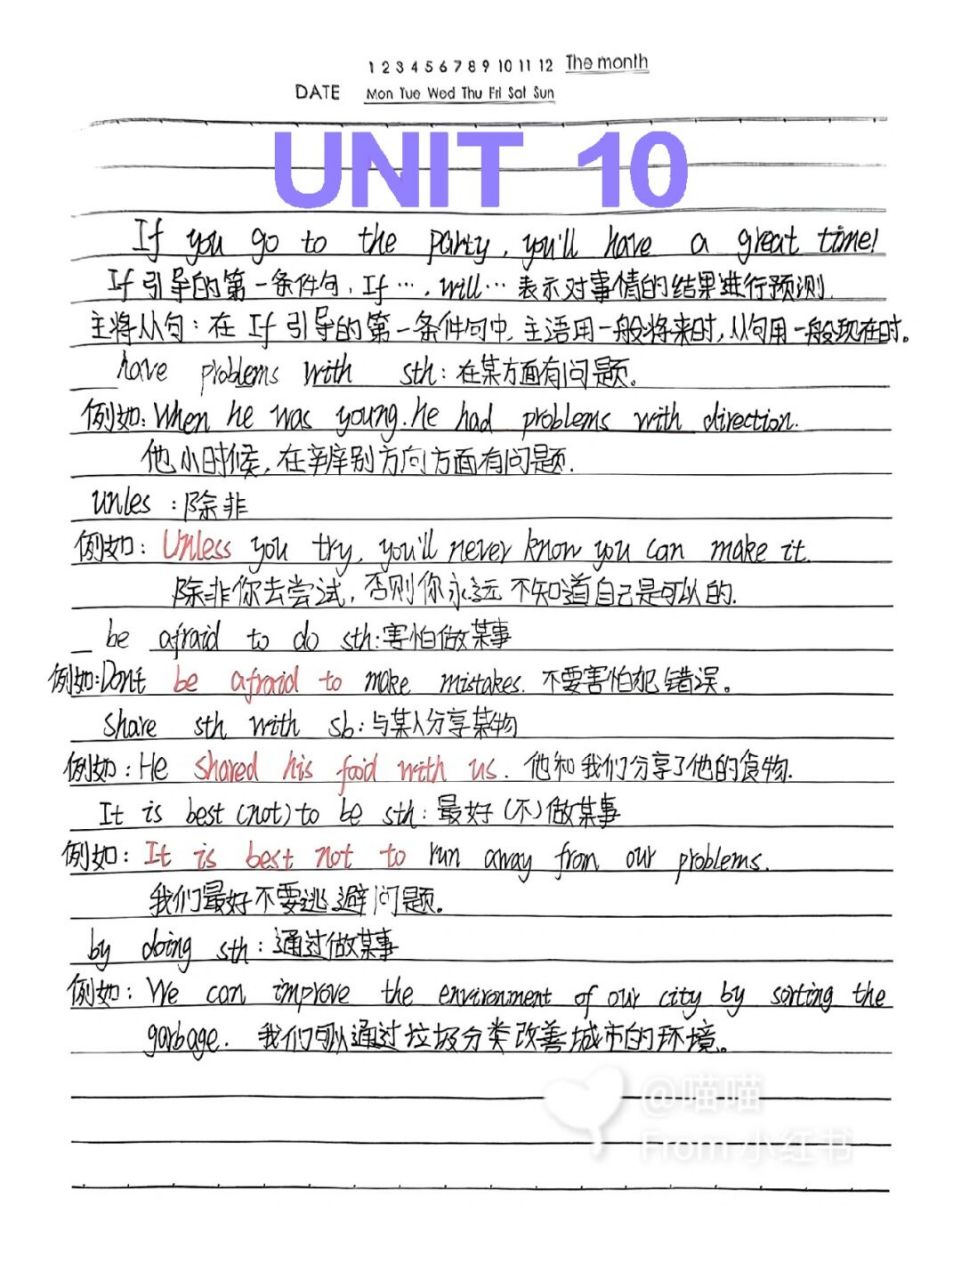 1 2 3 4 5 6 7 8 9 10 11 12 The month
DATE Mon Tue Wed Thu Fri Sat Sun
UNIT 10
If you go to the party, you'll have a great time!
If引导的第一条件句, If …, will … 表示对事情的结果进行预测.
主将从句: 在 If 引导的第一条件句中, 主语用一般将来时, 从句用一般现在时。
have problems with sth: 在某方面有问题。
例如: When he was young. he had problems with direction.
他小时候, 在辛辟别方向方面有问题.
unles : 除非
例如: Unless you try, you'll never know you can make it.
除非你去尝试, 否则你永远不知道自己是可以的.
be afraid to do sth: 害怕做某事
例如: Don't be afraid to make mistakes. 不要害怕犯错误。
share sth with sb: 与某人分享某物
例如: He shared his food with us. 他和我们分享了他的食物.
It is best (not) to be sth: 最好 (不) 做某事
例如: It is best not to run away from our problems.
我们最好不要逃避问题。
by doing sth: 通过做某事
例如: We can improve the environment of our city by sorting the
garbage. 我们可以通过垃圾分类改善城市的环境。
@喵喵
From 小红书